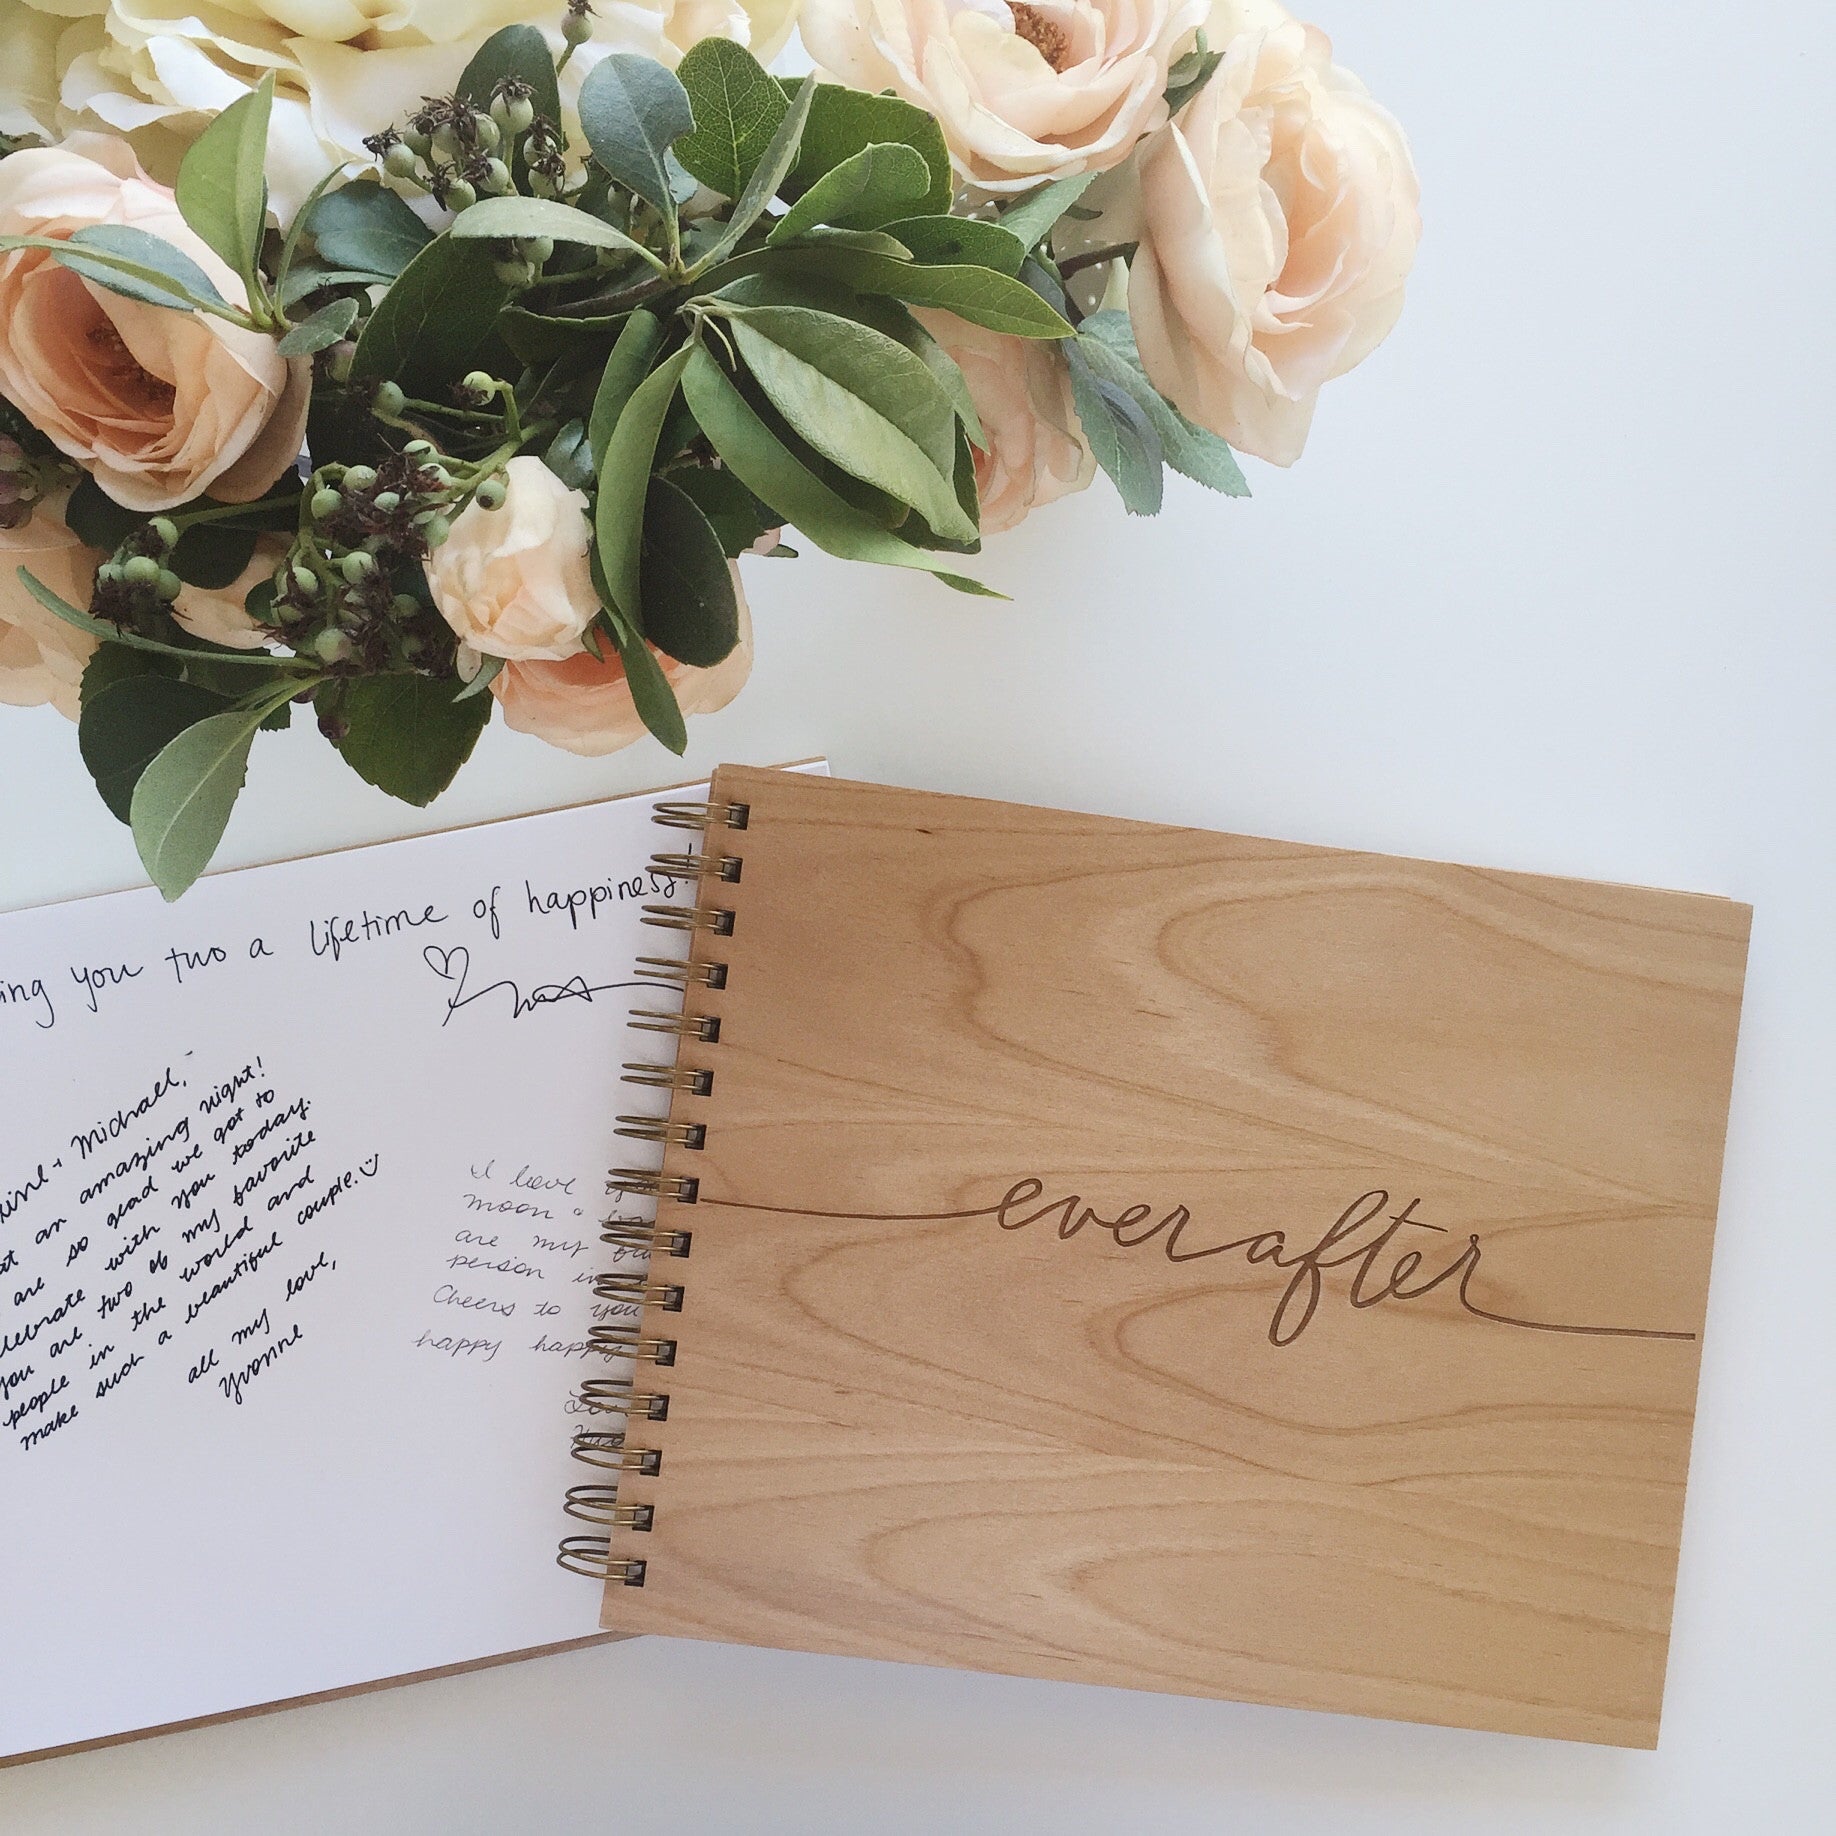 you two a lifetime of happiness!
+ Michael,
an amazing night!
are so glad we got to
with you today.
you are two of my favorite
people in the world and
make such a beautiful couple.
all my love,
Yvonne
I love
moon &
are my
person in
Cheers to you
happy happy
ever after